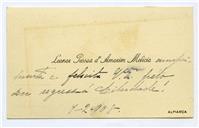 Leonor Pessoa d'Amorim Melicia cumpri-
menta e felicita V. Exª pelo
seu regresso à Liberdade!
7-2-948
ALMARÇA